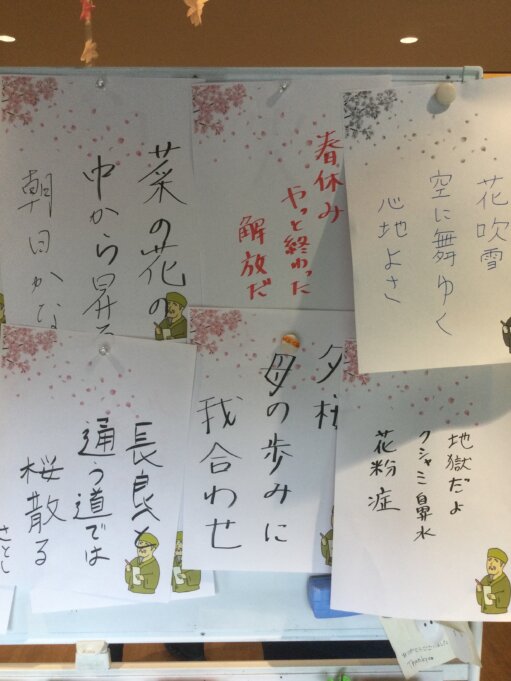 花吹雪
空に舞ゆく
心地よさ
春休み
やっと終わった
解放だ
菜の花の
中から昇る
朝日かな
地獄だよ
クシャミ鼻水
花粉症
夕桜
母の歩みに
我合わせ
長良へと
通う道では
桜散る
さとし